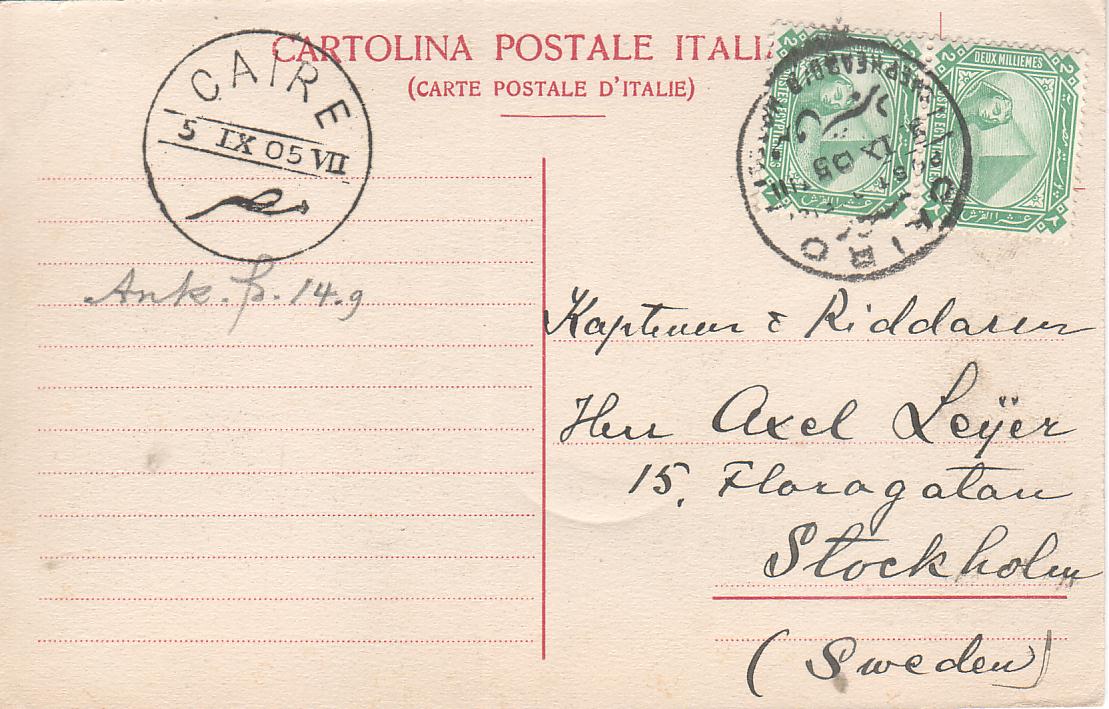 CARTOLINA POSTALE ITALI
(CARTE POSTALE D'ITALIE)
CAIRE
5 IX 05 VII
Ank. f. 14.9
2 2
DEUX MILLIEMES
2 2
عشر القرش
CAIRO
IX 05
Kaptenen & Riddaren
Herr Axel Leÿer
15, Floragatan
Stockholm
(Sweden)